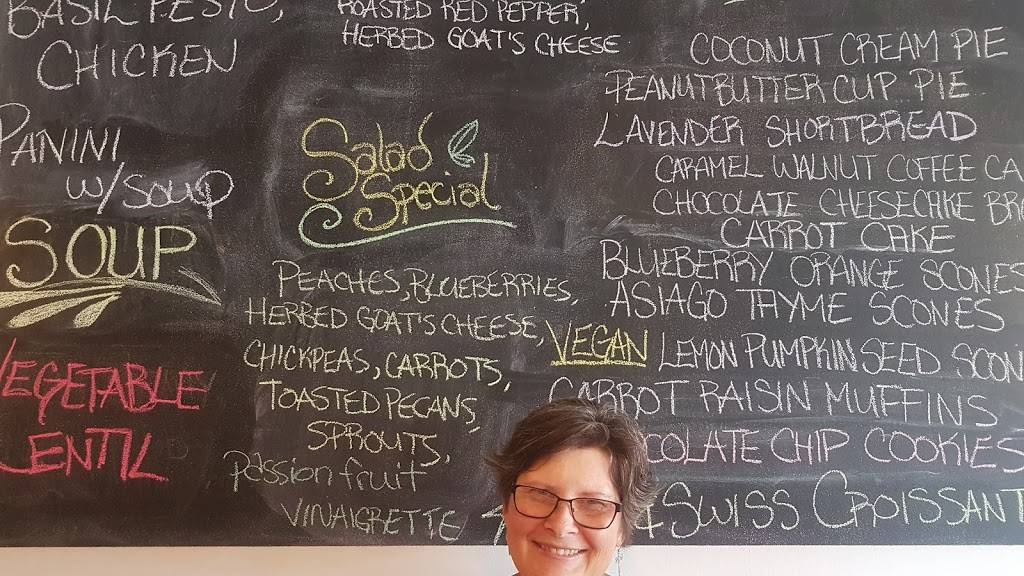 BASIL PESTO,
CHICKEN
PANINI
W/SOUP
SOUP
VEGETABLE
LENTIL
ROASTED RED PEPPER,
HERBED GOAT'S CHEESE
Salad
Special
PEACHES, BLUEBERRIES,
HERBED GOAT'S CHEESE,
CHICKPEAS, CARROTS,
TOASTED PECANS,
SPROUTS,
passion fruit
VINAIGRETTE
COCONUT CREAM PIE
PEANUTBUTTER CUP PIE
LAVENDER SHORTBREAD
CARAMEL WALNUT COFFEE CA
CHOCOLATE CHEESECAKE BR
CARROT CAKE
BLUEBERRY ORANGE SCONES
ASIAGO THYME SCONES
VEGAN LEMON PUMPKIN SEED SCON
CARROT RAISIN MUFFINS
COLATE CHIP COOKIES
SWISS CROISSANT